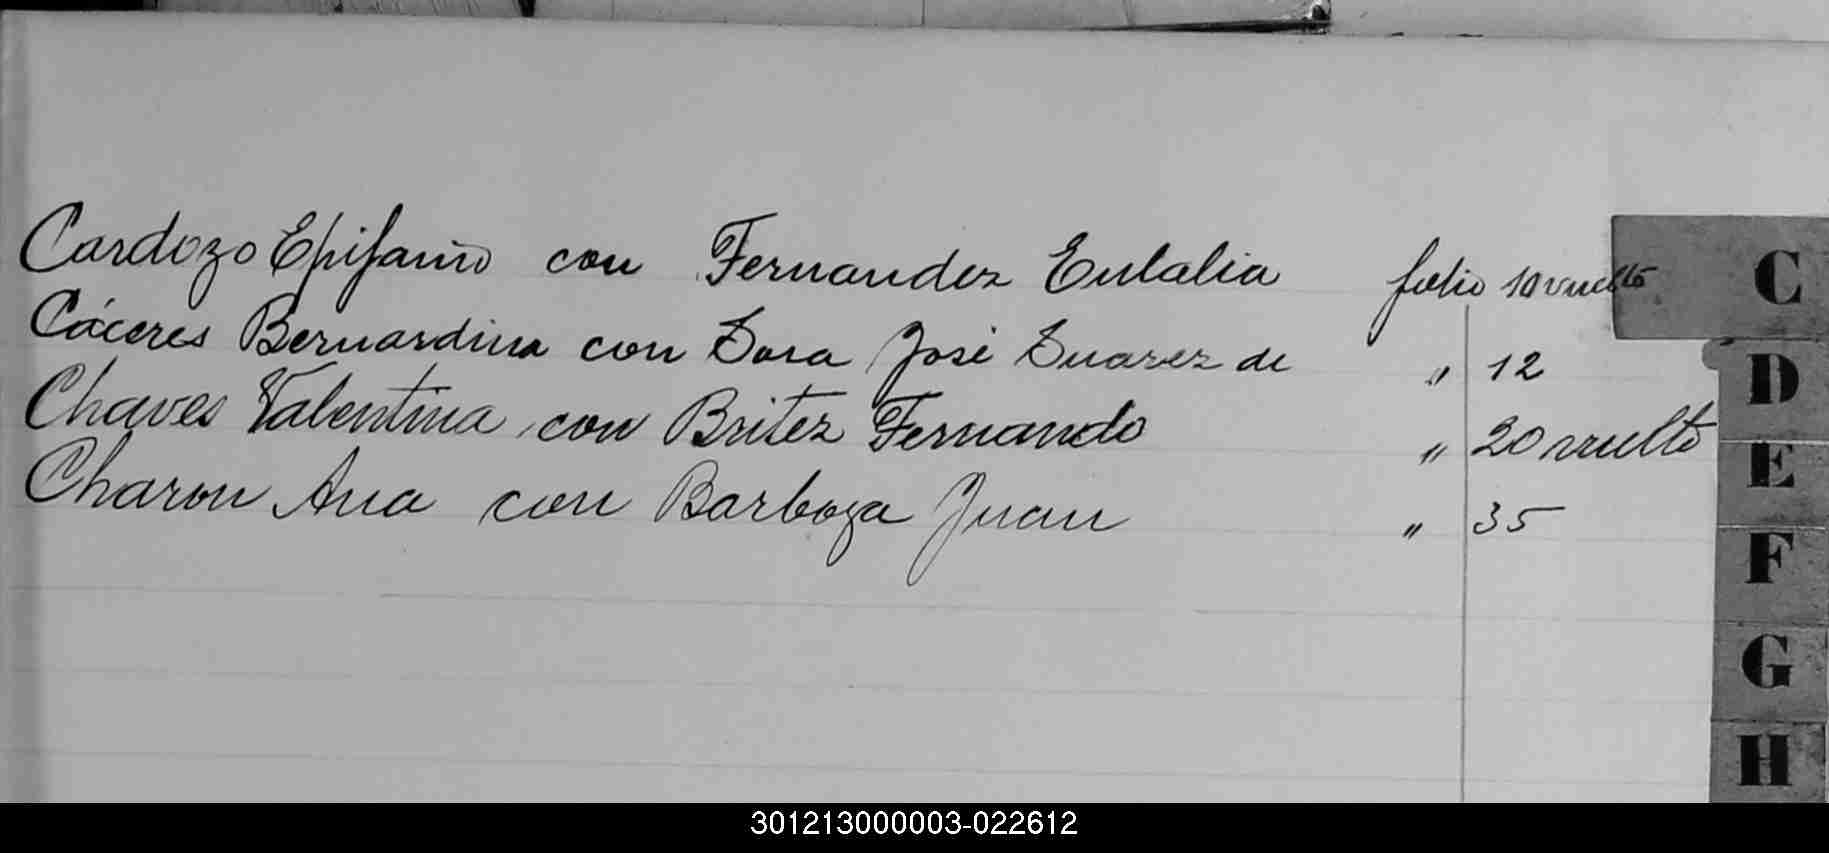 Cardozo Epifanio con Fernandez Eulalia folio 10 vuelto
Cáceres Bernardina con Sosa José Suarez de " 12
Chaves Valentina con Britez Fernando " 20 vuelto
Charon Ana con Barboza Juan " 35
C
D
E
F
G
H
301213000003-022612